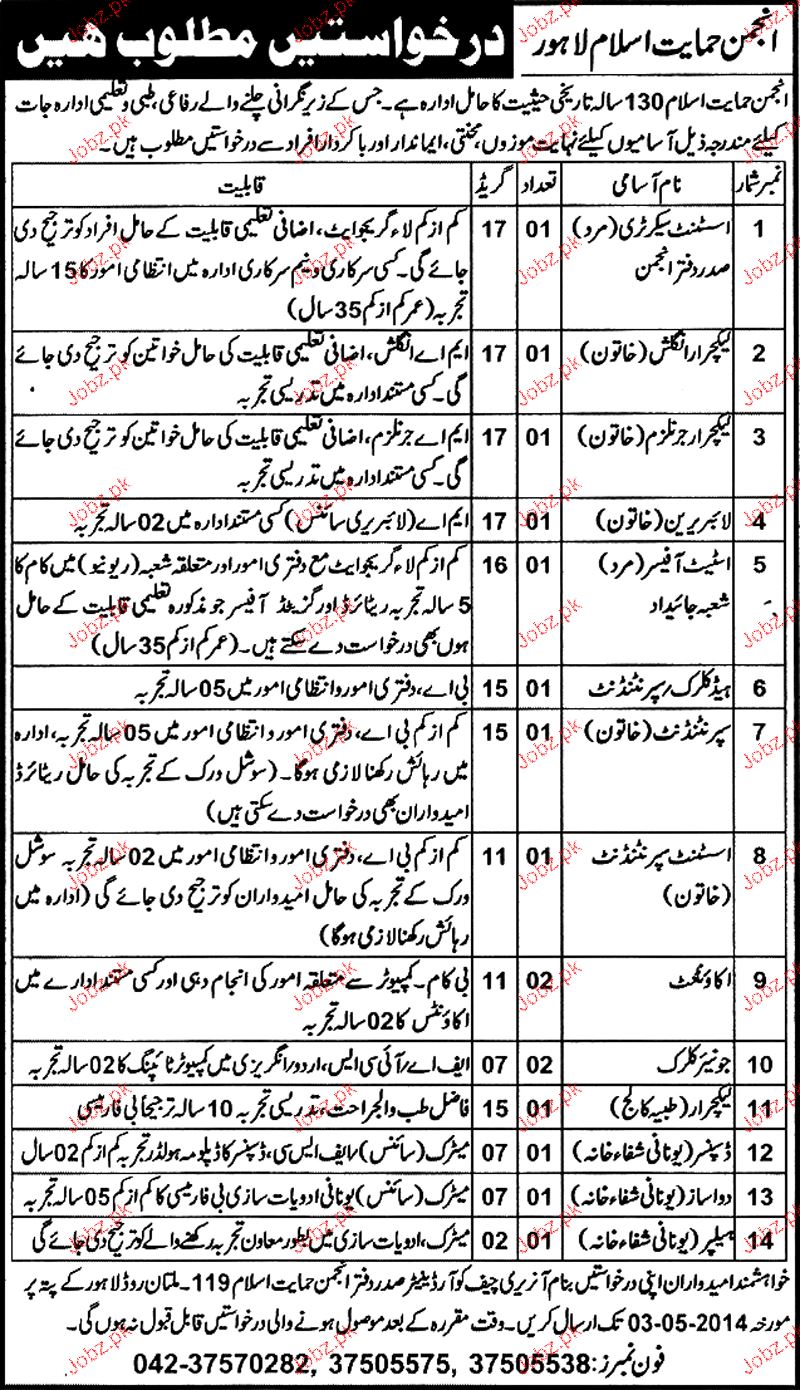 انجمن حمایت اسلام لاہور
درخواستیں مطلوب ھیں
انجمن حمایت اسلام 130 سالہ تاریخی حیثیت کا حامل ادارہ ہے۔ جس کے زیر نگرانی چلنے والے رفاعی، طبی و تعلیمی ادارہ جات
کیلئے مندرجہ ذیل آسامیوں کیلئے نہایت موزوں، محنتی، ایماندار اور باکردار افراد سے درخواستیں مطلوب ہیں۔
نمبر شمار نام آسامی تعداد گریڈ قابلیت
1 اسسٹنٹ سیکرٹری (مرد) 01 17 کم از کم لاء گریجوایٹ، اضافی تعلیمی قابلیت کے حامل افراد کو ترجیح دی
صدر دفتر انجمن جائے گی۔ کسی سرکاری و نیم سرکاری ادارہ میں انتظامی امور کا 15 سالہ
تجربہ (عمر کم از کم 35 سال)
2 لیکچرار انگلش (خاتون) 01 17 ایم اے انگلش، اضافی تعلیمی قابلیت کی حامل خواتین کو ترجیح دی جائے
گی۔ کسی مستند ادارہ میں تدریسی تجربہ
3 لیکچرار جرنلزم (خاتون) 01 17 ایم اے جرنلزم، اضافی تعلیمی قابلیت کی حامل خواتین کو ترجیح دی جائے
گی۔ کسی مستند ادارہ میں تدریسی تجربہ
4 لائبریرین (خاتون) 01 17 ایم اے (لائبریری سائنس) کسی مستند ادارہ میں 02 سالہ تجربہ
5 اسٹیٹ آفیسر (مرد) 01 16 کم از کم لاء گریجوایٹ مع دفتری امور اور متعلقہ شعبہ (ریونیو) میں کام کا
شعبہ جائیداد 5 سالہ تجربہ ریٹائرڈ اور گزیٹڈ آفیسر جو مذکورہ تعلیمی قابلیت کے حامل
ہوں بھی درخواست دے سکتے ہیں۔ (عمر کم از کم 35 سال)
6 ہیڈ کلرک/سپرنٹنڈنٹ 01 15 بی اے، دفتری امور و انتظامی امور میں 05 سالہ تجربہ
7 سپرنٹنڈنٹ (خاتون) 01 15 کم از کم بی اے، دفتری امور و انتظامی امور میں 05 سالہ تجربہ، ادارہ
میں رہائش رکھنا لازمی ہوگا۔ (سوشل ورک کے تجربہ کی حامل ریٹائرڈ
امیدواران بھی درخواست دے سکتی ہیں)
8 اسسٹنٹ سپرنٹنڈنٹ 01 11 کم از کم بی اے، دفتری امور و انتظامی امور میں 02 سالہ تجربہ سوشل
(خاتون) ورک کے تجربہ کی حامل امیدواران کو ترجیح دی جائے گی (ادارہ میں
رہائش رکھنا لازمی ہوگا)
9 اکاؤنٹنٹ 02 11 بی کام۔ کمپیوٹر سے متعلقہ امور کی انجام دہی اور کسی مستند ادارے میں
اکاؤنٹس کا 02 سالہ تجربہ
10 جونیئر کلرک 02 07 ایف اے/آئی سی ایس، اردو/انگریزی میں کمپیوٹر ٹائپنگ کا 02 سالہ تجربہ
11 لیکچرار (طبیہ کالج) 01 15 فاضل طب والجراحت، تدریسی تجربہ 10 سالہ ترجیحاً بی فارمیسی
12 ڈسپنسر (یونانی شفاء خانہ) 01 07 میٹرک (سائنس)/ایف ایس سی، ڈسپنسر کا ڈپلومہ ہولڈر تجربہ کم از کم 02 سال
13 دواساز (یونانی شفاء خانہ) 01 07 میٹرک (سائنس) یونانی ادویات سازی بی فارمیسی کا کم از کم 05 سالہ تجربہ
14 ہیلپر (یونانی شفاء خانہ) 01 02 میٹرک، ادویات سازی میں بطور معاون تجربہ رکھنے والے کو ترجیح دی جائے گی
خواہشمند امیدواران اپنی درخواستیں بنام آنریری چیف کوآرڈینیٹر صدر دفتر انجمن حمایت اسلام 119۔ ملتان روڈ لاہور کے پتہ پر
مورخہ 03-05-2014 تک ارسال کریں۔ وقت مقررہ کے بعد موصول ہونے والی درخواستیں قابل قبول نہ ہوں گی۔
فون نمبرز: 042-37570282, 37505575, 37505538
Jobz.pk